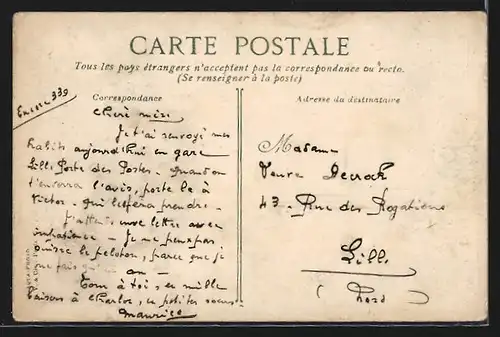 CARTE POSTALE
Tous les pays étrangers n'acceptent pas la correspondance au recto.
(Se renseigner à la poste)
Correspondance
Adresse du destinataire
Chère mère
Je t'ai renvoyé mes
habits aujourd'hui en gare
Lille Porte des Postes. Quand on
t'enverra l'avis, porte le à
Victor. qui les fera prendre.
J'attends une lettre avec
impatience - Je ne peux pas
suivre le peloton, parce que je
ne fais qu'un an -
Tout à toi, et mille
baisers à Charles, et petites sœurs
Maurice
Madame
Veuve
43 - Rue des Rogations
Lille
(Nord)